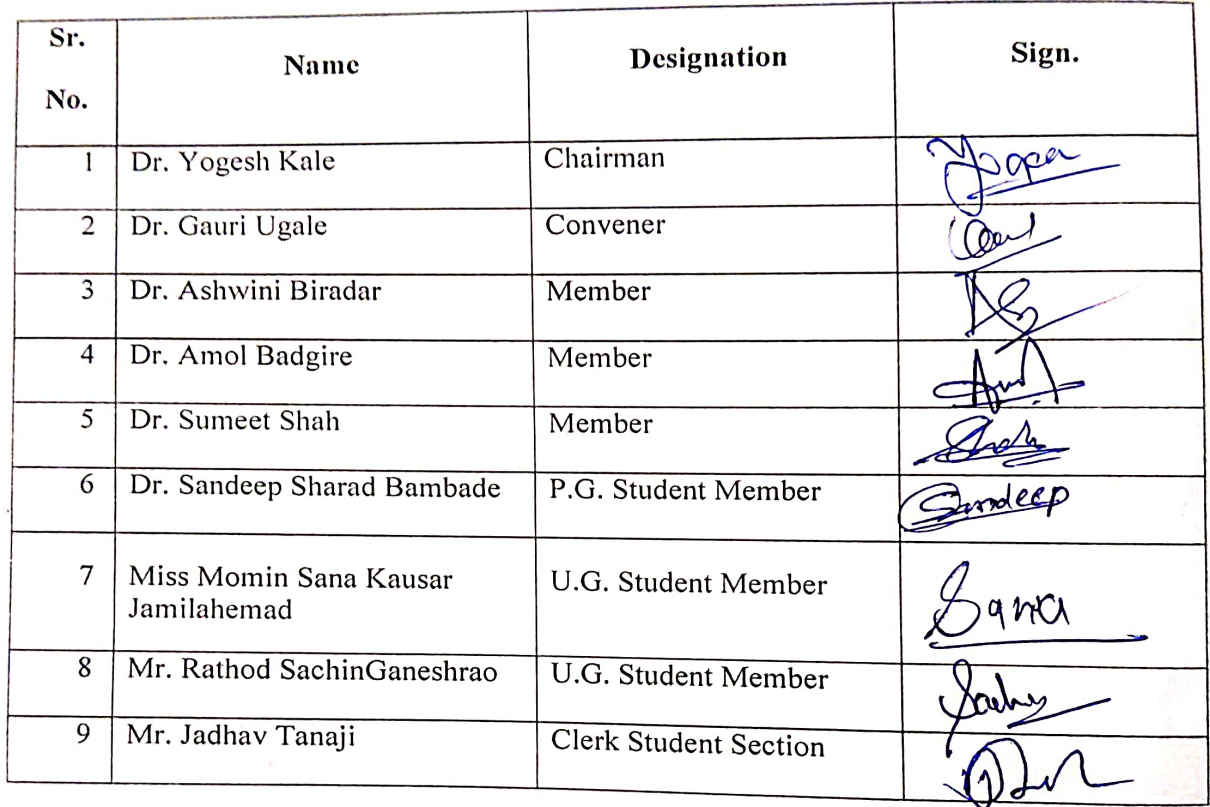 Sr.
No.
Name
Designation
Sign.
1 Dr. Yogesh Kale Chairman
2 Dr. Gauri Ugale Convener
3 Dr. Ashwini Biradar Member
4 Dr. Amol Badgire Member
5 Dr. Sumeet Shah Member
6 Dr. Sandeep Sharad Bambade P.G. Student Member Sandeep
7 Miss Momin Sana Kausar
Jamilahemad
U.G. Student Member Sana
8 Mr. Rathod SachinGaneshrao U.G. Student Member
9 Mr. Jadhav Tanaji Clerk Student Section